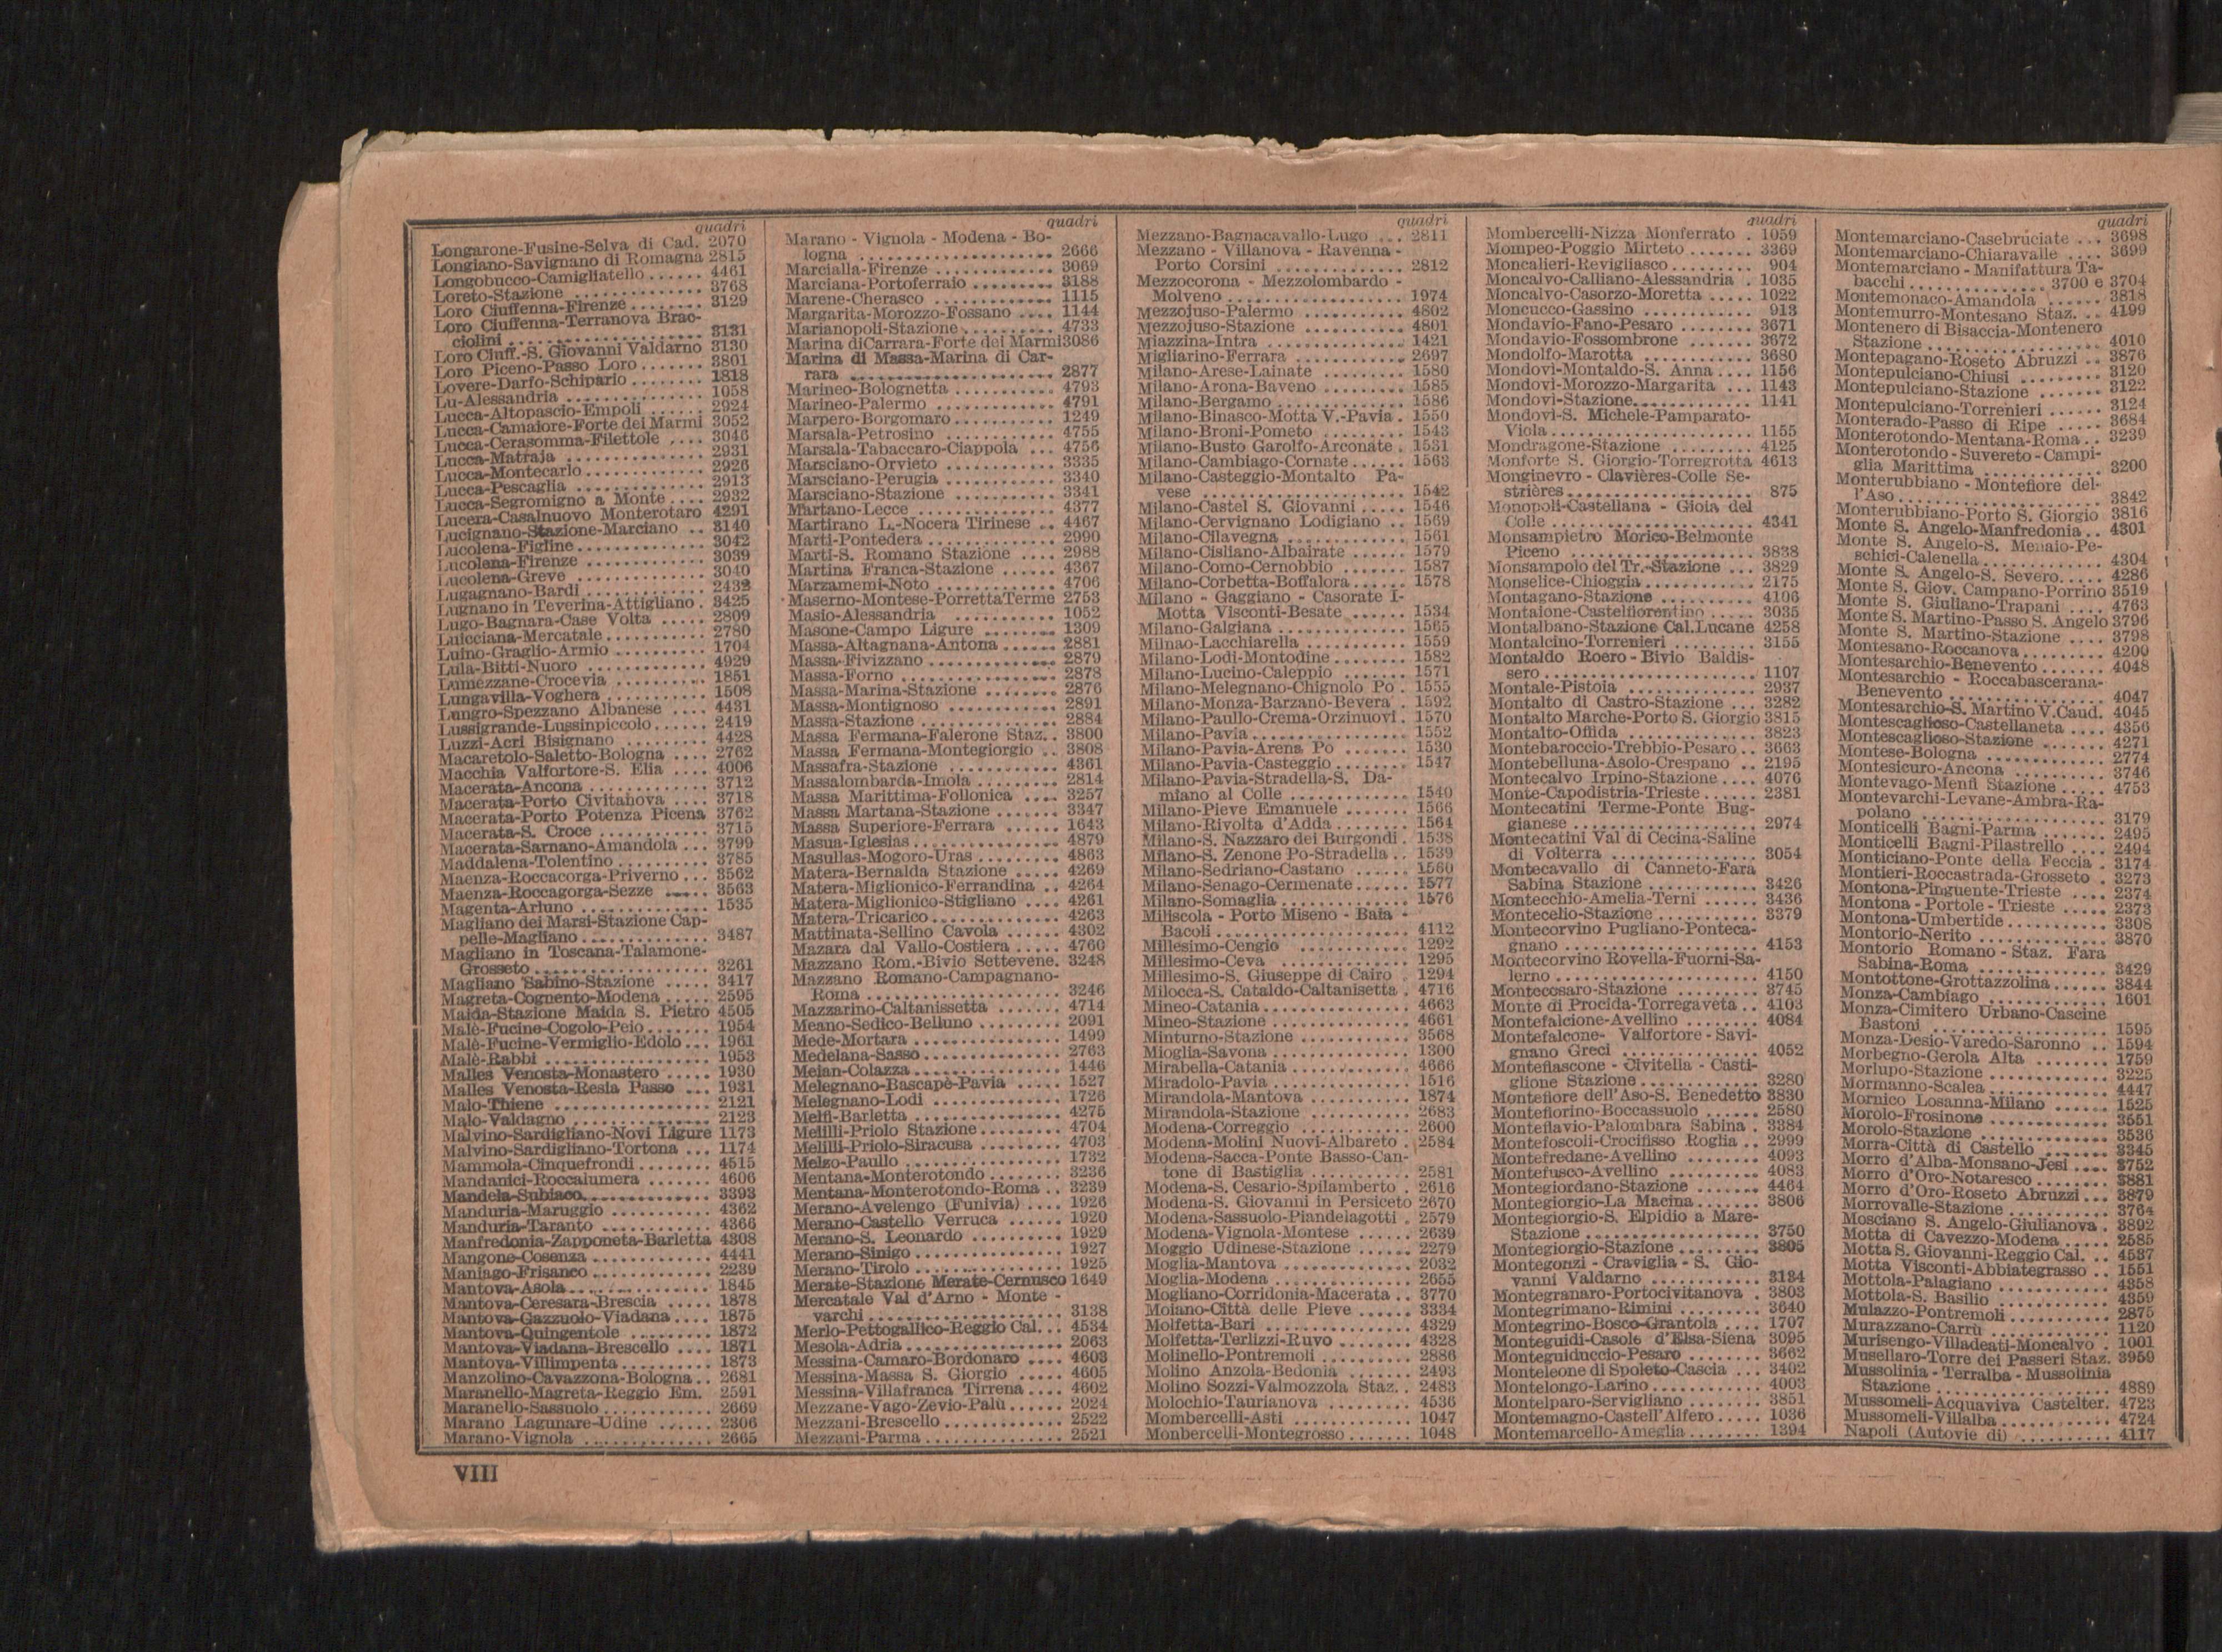 quadri
Longarone-Fusine-Selva di Cad. 2070
Longiano-Savignano di Romagna 2815
Longobucco-Camigliatello ...... 4461
Loreto-Stazione .............. 3768
Loro Ciuffenna-Firenze ........ 3129
Loro Ciuffenna-Terranova Brac-
ciolini .................... 3131
Loro Ciuff.-S. Giovanni Valdarno 3130
Loro Piceno-Passo Loro ....... 3801
Lovere-Darfo-Schipario ........ 1818
Lu-Alessandria ............... 1058
Lucca-Altopascio-Empoli ...... 2924
Lucca-Camaiore-Forte dei Marmi 3052
Lucca-Cerasomma-Filettole .... 3046
Lucca-Matraja ............... 2931
Lucca-Montecarlo ............ 2926
Lucca-Pescaglia .............. 2913
Lucca-Segromigno a Monte .... 2932
Lucera-Casalnuovo Monterotaro 4291
Lucignano-Stazione-Marciano .. 3140
Lucolena-Figline ............. 3042
Lucolena-Firenze ............. 3039
Lucolena-Greve .............. 3040
Lugagnano-Bardi ............. 2432
Lugnano in Teverina-Attigliano . 3425
Lugo-Bagnara-Case Volta ..... 2809
Luicciana-Mercatale ........... 2780
Luino-Graglio-Armio .......... 1704
Lula-Bitti-Nuoro ............ 4929
Lumezzane-Crocevia .......... 1851
Lungavilla-Voghera ........... 1508
Lungro-Spezzano Albanese .... 4431
Lussigrande-Lussinpiccolo ...... 2419
Luzzi-Acri Bisignano ......... 4428
Macaretolo-Saletto-Bologna .... 2762
Macchia Valfortore-S. Elia .... 4006
Macerata-Ancona ............. 3712
Macerata-Porto Civitanova .... 3718
Macerata-Porto Potenza Picena 3762
Macerata-S. Croce ............ 3715
Macerata-Sarnano-Amandola ... 3799
Maddalena-Tolentino .......... 3785
Maenza-Roccacorga-Priverno ... 3562
Maenza-Roccagorga-Sezze ..... 3563
Magenta-Arluno .............. 1535
Magliano dei Marsi-Stazione Cap-
pelle-Magliano .............. 3487
Magliano in Toscana-Talamone-
Grosseto ................... 3261
Magliano Sabino-Stazione ..... 3417
Magreta-Cognento-Modena ..... 2595
Maida-Stazione Maida S. Pietro 4505
Malè-Fucine-Cogolo-Peio ....... 1954
Malè-Fucine-Vermiglio-Edolo ... 1961
Malè-Rabbi .................. 1953
Malles Venosta-Monastero ..... 1930
Malles Venosta-Resia Passo ... 1931
Malo-Thiene ................. 2121
Malo-Valdagno ............... 2123
Malvino-Sardigliano-Novi Ligure 1173
Malvino-Sardigliano-Tortona ... 1174
Mammola-Cinquefrondi ........ 4515
Mandanici-Roccalumera ....... 4606
Mandela-Subiaco .............. 3393
Manduria-Maruggio ........... 4362
Manduria-Taranto ............ 4366
Manfredonia-Zapponeta-Barletta 4308
Mangone-Cosenza ............. 4441
Maniago-Frisanco ............. 2239
Mantova-Asola ............... 1845
Mantova-Ceresara-Brescia ..... 1878
Mantova-Gazzuolo-Viadana .... 1875
Mantova-Quingentole ......... 1872
Mantova-Viadana-Brescello .... 1871
Mantova-Villimpenta .......... 1873
Manzolino-Cavazzona-Bologna .. 2681
Maranello-Magreta-Reggio Em. 2591
Maranello-Sassuolo ............ 2669
Marano Lagunare-Udine ...... 2306
Marano-Vignola .............. 2665
quadri
Marano - Vignola - Modena - Bo-
logna ..................... 2666
Marcialla-Firenze ............. 3069
Marciana-Portoferraio ......... 3188
Marene-Cherasco ............. 1115
Margarita-Morozzo-Fossano .... 1144
Marianopoli-Stazione .......... 4733
Marina diCarrara-Forte dei Marmi3086
Marina di Massa-Marina di Car-
rara ...................... 2877
Marineo-Bolognetta ........... 4793
Marineo-Palermo ............. 4791
Marpero-Borgomaro ........... 1249
Marsala-Petrosino ............ 4755
Marsala-Tabaccaro-Ciappola ... 4756
Marsciano-Orvieto ............ 3335
Marsciano-Perugia ............ 3340
Marsciano-Stazione ........... 3341
Martano-Lecce ............... 4377
Martirano L.-Nocera Tirinese .. 4467
Marti-Pontedera .............. 2990
Marti-S. Romano Stazione .... 2988
Martina Franca-Stazione ...... 4367
Marzamemi-Noto ............. 4706
Maserno-Montese-PorrettaTerme 2753
Masio-Alessandria ............ 1052
Masone-Campo Ligure ........ 1309
Massa-Altagnana-Antona ...... 2881
Massa-Fivizzano .............. 2879
Massa-Forno ................. 2878
Massa-Marina-Stazione ........ 2876
Massa-Montignoso ............ 2891
Massa-Stazione ............... 2884
Massa Fermana-Falerone Staz. . 3800
Massa Fermana-Montegiorgio .. 3808
Massafra-Stazione ............ 4361
Massalombarda-Imola ......... 2814
Massa Marittima-Follonica .... 3257
Massa Martana-Stazione ....... 3347
Massa Superiore-Ferrara ...... 1643
Masua-Iglesias ................ 4879
Masullas-Mogoro-Uras ......... 4863
Matera-Bernalda Stazione ..... 4269
Matera-Miglionico-Ferrandina .. 4264
Matera-Miglionico-Stigliano .... 4261
Matera-Tricarico .............. 4263
Mattinata-Sellino Cavola ...... 4302
Mazara dal Vallo-Costiera ..... 4760
Mazzano Rom.-Bivio Settevene. 3248
Mazzano Romano-Campagnano-
Roma ..................... 3246
Mazzarino-Caltanissetta ....... 4714
Meano-Sedico-Belluno ......... 2091
Mede-Mortara ................ 1499
Medelana-Sasso ............... 2763
Meian-Colazza ................ 1446
Melegnano-Bascapè-Pavia ..... 1527
Melegnano-Lodi .............. 1726
Melfi-Barletta ................ 4275
Melilli-Priolo Stazione ......... 4704
Melilli-Priolo-Siracusa ......... 4703
Melzo-Paullo ................. 1732
Mentana-Monterotondo ........ 3236
Mentana-Monterotondo-Roma .. 3239
Merano-Avelengo (Funivia) .... 1926
Merano-Castello Verruca ...... 1920
Merano-S. Leonardo .......... 1929
Merano-Sinigo ................ 1927
Merano-Tirolo ................ 1925
Merate-Stazione Merate-Cernusco 1649
Mercatale Val d'Arno - Monte -
varchi ..................... 3138
Merlo-Pettogallico-Reggio Cal. .. 4534
Mesola-Adria ................. 2063
Messina-Camaro-Bordonaro .... 4603
Messina-Massa S. Giorgio ..... 4605
Messina-Villafranca Tirrena .... 4602
Mezzane-Vago-Zevio-Palù ...... 2024
Mezzani-Brescello ............. 2522
Mezzani-Parma ............... 2521
quadri
Mezzano-Bagnacavallo-Lugo ... 2811
Mezzano - Villanova - Ravenna -
Porto Corsini .............. 2812
Mezzocorona - Mezzolombardo -
Molveno ................... 1974
Mezzojuso-Palermo ............ 4802
Mezzojuso-Stazione ........... 4801
Miazzina-Intra ............... 1421
Migliarino-Ferrara ............ 2697
Milano-Arese-Lainate ......... 1580
Milano-Arona-Baveno ......... 1585
Milano-Bergamo .............. 1586
Milano-Binasco-Motta V.-Pavia . 1550
Milano-Broni-Pometo ......... 1543
Milano-Busto Garolfo-Arconate . 1531
Milano-Cambiago-Cornate ...... 1563
Milano-Casteggio-Montalto Pa-
vese ...................... 1542
Milano-Castel S. Giovanni ..... 1546
Milano-Cervignano Lodigiano .. 1569
Milano-Cilavegna ............. 1561
Milano-Cisliano-Albairate ...... 1579
Milano-Como-Cernobbio ....... 1587
Milano-Corbetta-Boffalora ...... 1578
Milano - Gaggiano - Casorate I-
Motta Visconti-Besate ...... 1534
Milano-Galgiana .............. 1565
Milnao-Lacchiarella ........... 1559
Milano-Lodi-Montodine ........ 1582
Milano-Lucino-Caleppio ....... 1571
Milano-Melegnano-Chignolo Po . 1555
Milano-Monza-Barzanò-Bevera . 1592
Milano-Paullo-Crema-Orzinuovi . 1570
Milano-Pavia ................. 1552
Milano-Pavia-Arena Po ....... 1530
Milano-Pavia-Casteggio ........ 1547
Milano-Pavia-Stradella-S. Da-
miano al Colle ............. 1540
Milano-Pieve Emanuele ....... 1566
Milano-Rivolta d'Adda ........ 1564
Milano-S. Nazzaro dei Burgondi . 1538
Milano-S. Zenone Po-Stradella .. 1539
Milano-Sedriano-Castano ...... 1560
Milano-Senago-Cermenate ...... 1577
Milano-Somaglia .............. 1576
Miliscola - Porto Miseno - Baia -
Bacoli ..................... 4112
Millesimo-Cengio ............. 1292
Millesimo-Ceva .............. 1295
Millesimo-S. Giuseppe di Cairo . 1294
Milocca-S. Cataldo-Caltanisetta . 4716
Mineo-Catania ................ 4663
Mineo-Stazione ............... 4661
Minturno-Stazione ............ 3568
Mioglia-Savona ............... 1300
Mirabella-Catania ............. 4666
Miradolo-Pavia ............... 1516
Mirandola-Mantova ........... 1874
Mirandola-Stazione ........... 2683
Modena-Correggio ............ 2600
Modena-Molini Nuovi-Albareto . 2584
Modena-Sacca-Ponte Basso-Can-
tone di Bastiglia ........... 2581
Modena-S. Cesario-Spilamberto . 2616
Modena-S. Giovanni in Persiceto 2670
Modena-Sassuolo-Piandelagotti . 2579
Modena-Vignola-Montese ...... 2639
Moggio Udinese-Stazione ...... 2279
Moglia-Mantova .............. 2032
Moglia-Modena ............... 2655
Mogliano-Corridonia-Macerata .. 3770
Moiano-Città delle Pieve ...... 3334
Molfetta-Bari ................ 4329
Molfetta-Terlizzi-Ruvo ........ 4328
Molinello-Pontremoli .......... 2886
Molino Anzola-Bedonia ....... 2493
Molino Sozzi-Valmozzola Staz. . 2483
Molochio-Taurianova .......... 4536
Mombercelli-Asti ............. 1047
Monbercelli-Montegrosso ....... 1048
quadri
Mombercelli-Nizza Monferrato . 1059
Mompeo-Poggio Mirteto ....... 3369
Moncalieri-Revigliasco ......... 904
Moncalvo-Calliano-Alessandria . 1035
Moncalvo-Casorzo-Moretta ..... 1022
Moncucco-Gassino ............ 913
Mondavio-Fano-Pesaro ........ 3671
Mondavio-Fossombrone ....... 3672
Mondolfo-Marotta ............ 3680
Mondovi-Montaldo-S. Anna .... 1156
Mondovi-Morozzo-Margarita ... 1143
Mondovi-Stazione ............. 1141
Mondovi-S. Michele-Pamparato-
Viola ...................... 1155
Mondragone-Stazione ......... 4125
Monforte S. Giorgio-Torregrotta 4613
Monginevro - Clavières-Colle Se-
strières .................... 875
Monopoli-Castellana - Gioia del
Colle ...................... 4341
Monsampietro Morico-Belmonte
Piceno .................... 3838
Monsampolo del Tr.-Stazione ... 3829
Monselice-Chioggia ............ 2175
Montagano-Stazione .......... 4106
Montaione-Castelfiorentino ..... 3035
Montalbano-Stazione Cal.Lucane 4258
Montalcino-Torrenieri ......... 3155
Montaldo Roero - Bivio Baldis-
sero ....................... 1107
Montale-Pistoia .............. 2937
Montalto di Castro-Stazione ... 3282
Montalto Marche-Porto S. Giorgio 3815
Montalto-Offida .............. 3823
Montebaroccio-Trebbio-Pesaro .. 3663
Montebelluna-Asolo-Crespano .. 2195
Montecalvo Irpino-Stazione .... 4076
Monte-Capodistria-Trieste ..... 2381
Montecatini Terme-Ponte Bug-
gianese .................... 2974
Montecatini Val di Cecina-Saline
di Volterra ................ 3054
Montecavallo di Canneto-Fara
Sabina Stazione ............ 3426
Montecchio-Amelia-Terni ..... 3436
Montecelio-Stazione ........... 3379
Montecorvino Pugliano-Ponteca-
gnano ..................... 4153
Montecorvino Rovella-Fuorni-Sa-
lerno ...................... 4150
Montecosaro-Stazione ......... 3745
Monte di Procida-Torregaveta .. 4103
Montefalcione-Avellino ........ 4084
Montefalcone- Valfortore - Savi-
gnano Greci ................ 4052
Montefiascone - Civitella - Casti-
glione Stazione .............. 3280
Montefiore dell'Aso-S. Benedetto 3830
Montefiorino-Boccassuolo ...... 2580
Monteflavio-Palombara Sabina . 3384
Montefoscoli-Crocifisso Roglia .. 2999
Montefredane-Avellino ........ 4093
Montefusco-Avellino .......... 4083
Montegiordano-Stazione ....... 4464
Montegiorgio-La Macina ....... 3806
Montegiorgio-S. Elpidio a Mare-
Stazione ................... 3750
Montegiorgio-Stazione ......... 3805
Montegonzi - Craviglia - S. Gio-
vanni Valdarno ............. 3134
Montegranaro-Portocivitanova . 3803
Montegrimano-Rimini ......... 3640
Montegrino-Bosco-Grantola .... 1707
Monteguidi-Casole d'Elsa-Siena 3095
Monteguiduccio-Pesaro ........ 3662
Monteleone di Spoleto-Cascia ... 3402
Montelongo-Larino ............ 4003
Montelparo-Servigliano ........ 3851
Montemagno-Castell'Alfero ..... 1036
Montemarcello-Ameglia ........ 1394
quadri
Montemarciano-Casebruciate ... 3698
Montemarciano-Chiaravalle .... 3699
Montemarciano - Manifattura Ta-
bacchi ............... 3700 e 3704
Montemonaco-Amandola ...... 3818
Montemurro-Montesano Staz. .. 4199
Montenero di Bisaccia-Montenero
Stazione ................... 4010
Montepagano-Roseto Abruzzi .. 3876
Montepulciano-Chiusi ......... 3120
Montepulciano-Stazione ....... 3122
Montepulciano-Torrenieri ...... 3124
Monterado-Passo di Ripe ..... 3684
Monterotondo-Mentana-Roma .. 3239
Monterotondo - Suvereto - Campi-
glia Marittima ............. 3200
Monterubbiano - Montefiore del-
l'Aso ...................... 3842
Monterubbiano-Porto S. Giorgio 3816
Monte S. Angelo-Manfredonia .. 4301
Monte S. Angelo-S. Menaio-Pe-
schici-Calenella ............. 4304
Monte S. Angelo-S. Severo ..... 4286
Monte S. Giov. Campano-Porrino 3519
Monte S. Giuliano-Trapani .... 4763
Monte S. Martino-Passo S. Angelo 3796
Monte S. Martino-Stazione .... 3798
Montesano-Roccanova ......... 4200
Montesarchio-Benevento ...... 4048
Montesarchio - Roccabascerana-
Benevento ................. 4047
Montesarchio-S. Martino V.Caud. 4045
Montescaglioso-Castellaneta .... 4356
Montescaglioso-Stazione ....... 4271
Montese-Bologna ............. 2774
Montesicuro-Ancona .......... 3746
Montevago-Menfi Stazione ..... 4753
Montevarchi-Levane-Ambra-Ra-
polano .................... 3179
Monticelli Bagni-Parma ....... 2495
Monticelli Bagni-Pilastrello .... 2494
Monticiano-Ponte della Feccia . 3174
Montieri-Roccastrada-Grosseto . 3273
Montona-Pinguente-Trieste .... 2374
Montona - Portole - Trieste ..... 2373
Montona-Umbertide ........... 3308
Montorio-Nerito .............. 3870
Montorio Romano - Staz. Fara
Sabina-Roma .............. 3429
Montottone-Grottazzolina ...... 3844
Monza-Cambiago ............. 1601
Monza-Cimitero Urbano-Cascine
Bastoni .................... 1595
Monza-Desio-Varedo-Saronno .. 1594
Morbegno-Gerola Alta ........ 1759
Morlupo-Stazione ............. 3225
Mormanno-Scalea ............. 4447
Mornico Losanna-Milano ...... 1525
Morolo-Frosinone ............. 3551
Morolo-Stazione .............. 3536
Morra-Città di Castello ....... 3345
Morro d'Alba-Monsano-Jesi .... 3752
Morro d'Oro-Notaresco ........ 3881
Morro d'Oro-Roseto Abruzzi ... 3879
Morrovalle-Stazione ........... 3764
Mosciano S. Angelo-Giulianova . 3892
Motta di Cavezzo-Modena ..... 2585
Motta S. Giovanni-Reggio Cal. .. 4537
Motta Visconti-Abbiategrasso .. 1551
Mottola-Palagiano ............ 4358
Mottola-S. Basilio ............ 4359
Mulazzo-Pontremoli ........... 2875
Murazzano-Carrù ............. 1120
Murisengo-Villadeati-Moncalvo . 1001
Musellaro-Torre dei Passeri Staz. 3959
Mussolinia - Terralba - Mussolinia
Stazione ................... 4889
Mussomeli-Acquaviva Castelter. 4723
Mussomeli-Villalba ............ 4724
Napoli (Autovie di) .......... 4117
VIII